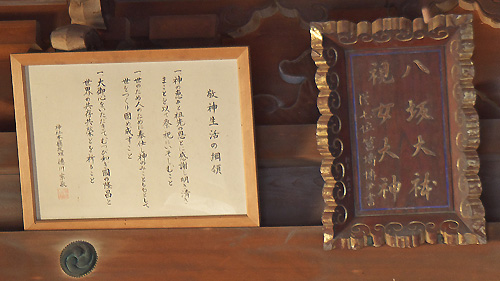 八坂大神
敬神生活の綱領
一 神の恵みと祖先の恩とに感謝し明き清き
まことを以て祭祀にいそしむこと
一 世のため人のために奉仕し神のみこともちとして
世をつくり固め成すこと
一 大御心をいただきてむつび和らぎ國の隆昌と
世界の共存共栄とを祈ること
神社本廳統理 徳川宗敬